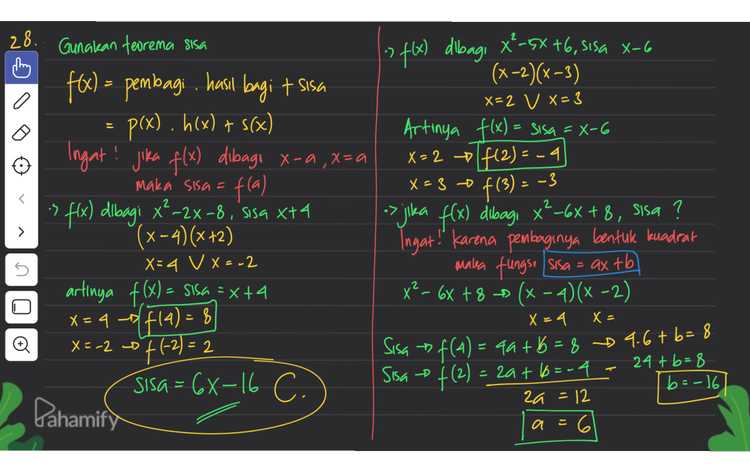 28. Gunakan teorema sisa
f(x) = pembagi . hasil bagi + sisa
= p(x) . h(x) + s(x)
Ingat! jika f(x) dibagi x-a, x=a
maka sisa = f(a)
•> f(x) dibagi x²-2x-8, sisa x+4
(x-4)(x+2)
x=4 V x=-2
artinya f(x) = sisa = x+4
x=4 → f(4) = 8
x=-2 → f(-2) = 2
sisa = 6x-16 C.
Pahamify
•> f(x) dibagi x²-5x+6, sisa x-6
(x-2)(x-3)
x=2 V x=3
Artinya f(x) = sisa = x-6
x=2 → f(2) = -4
x=3 → f(3) = -3
•> jika f(x) dibagi x²-6x+8, sisa ?
Ingat! karena pembaginya bentuk kuadrat
maka fungsi sisa = ax+b
x²-6x+8 → (x-4)(x-2)
x=4 x=
Sisa → f(4) = 4a+b = 8 → 4.6+b = 8
Sisa → f(2) = 2a+b = -4 - 24+b=8
2a = 12 b=-16
a = 6